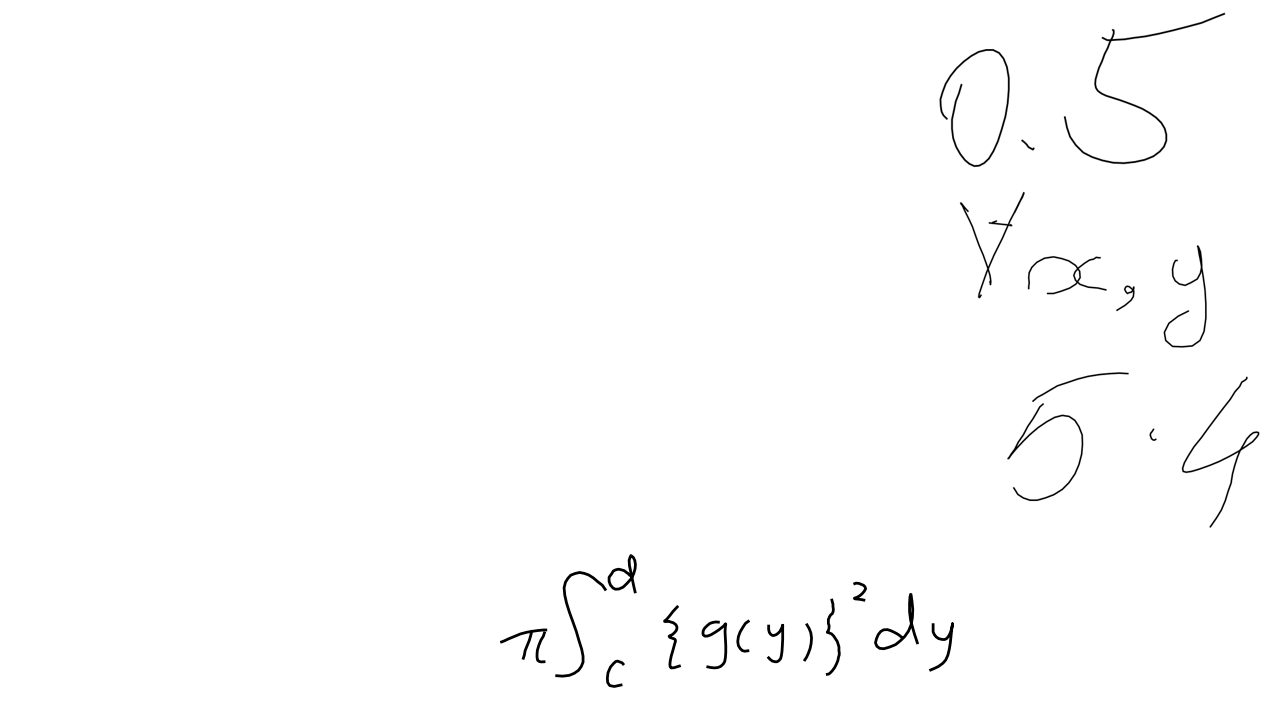 0.5
∀x, y
5·4
π∫_c^d {g(y)}² dy